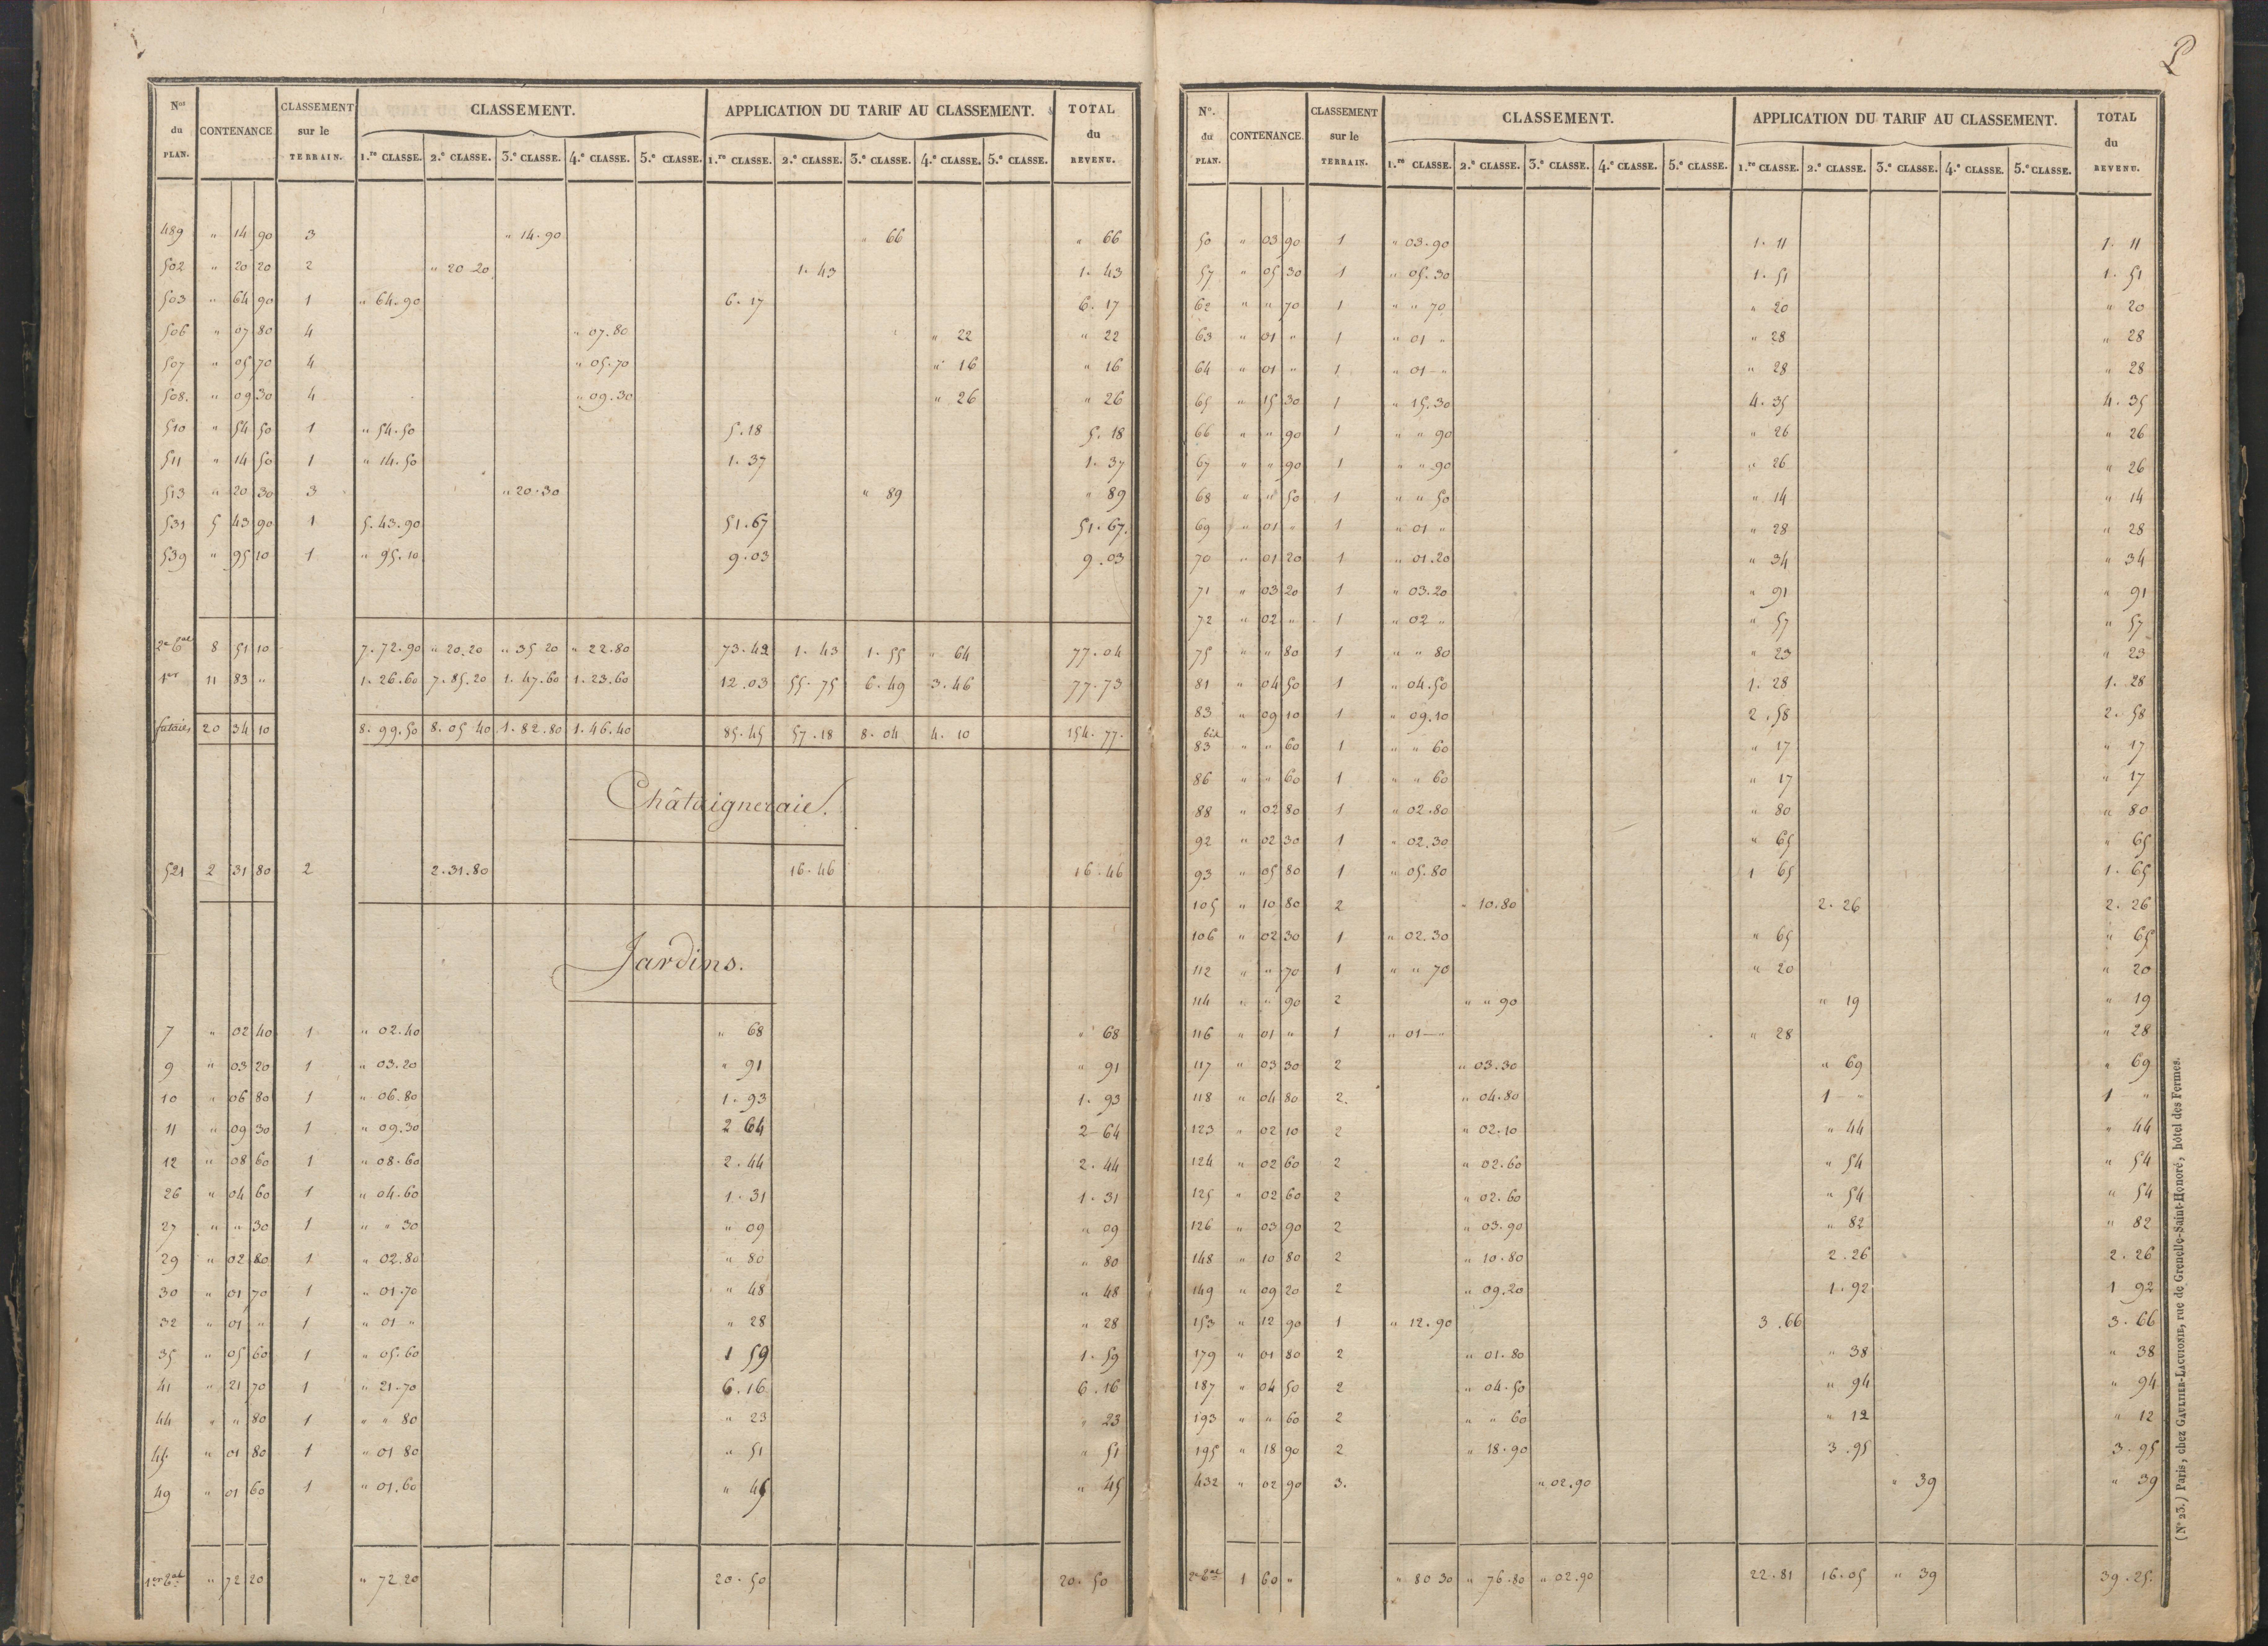 Nos du PLAN. CONTENANCE CLASSEMENT sur le TERRAIN. CLASSEMENT. APPLICATION DU TARIF AU CLASSEMENT. TOTAL du REVENU.
1.re CLASSE. 2.e CLASSE. 3.e CLASSE. 4.e CLASSE. 5.e CLASSE. 1.re CLASSE. 2.e CLASSE. 3.e CLASSE. 4.e CLASSE. 5.e CLASSE.
489 " 14 90 3 " 14.90 " 66 " 66
502 " 20 20 2 " 20 20 1. 43 1. 43
503 " 64 90 1 " 64.90 6. 17 6. 17
506 " 07 80 4 " 07.80 " 22 " 22
507 " 05 70 4 " 05.70 " 16 " 16
508. " 09 30 4 " 09.30 " 26 " 26
510 " 54 50 1 " 54.50 5.18 5. 18
511 " 14 50 1 " 14.50 1. 37 1. 37
513 " 20 30 3 " 20.30 " 89 " 89
531 5 43 90 1 5.43.90 51.67 51.67.
539 " 95 10 1 " 95.10 9.03 9.03
2e Gal 8 51 10 7.72.90 " 20.20 " 35 20 " 22.80 73.42 1. 43 1. 55 " 64 77.04
1er 11 83 " 1.26.60 7.85.20 1.47.60 1.23.60 12.03 55.75 6.49 3.46 77.73
futaies 20 34 10 8.99.50 8.05 40 1.82.80 1.46.40 85.45 57.18 8.04 4. 10 154.77.
Châtaigneraie.
521 2 31 80 2 2.31.80 16.46 16.46
Jardins.
7 " 02 40 1 " 02.40 " 68 " 68
9 " 03 20 1 " 03.20 " 91 " 91
10 " 06 80 1 " 06.80 1. 93 1. 93
11 " 09 30 1 " 09.30 2 64 2-64
12 " 08 60 1 " 08.60 2.44 2.44
26 " 04 60 1 " 04.60 1.31 1.31
27 " " 30 1 " " 30 " 09 " 09
29 " 02 80 1 " 02.80 " 80 " 80
30 " 01 70 1 " 01.70 " 48 " 48
32 " 01 " 1 " 01 " " 28 " 28
35 " 05 60 1 " 05.60 1 59 1.59
41 " 21 70 1 " 21.70 6.16 6.16
44 " " 80 1 " " 80 " 23 " 23
45 " 01 80 1 " 01 80 " 51 " 51
49 " 01 60 1 " 01.60 " 45 " 45
1er Gal " 72 20 " 72 20 20.50 20.50
No. du PLAN. CONTENANCE. CLASSEMENT sur le TERRAIN. CLASSEMENT. APPLICATION DU TARIF AU CLASSEMENT. TOTAL du REVENU.
1.re CLASSE. 2.e CLASSE. 3.e CLASSE. 4.e CLASSE. 5.e CLASSE. 1.re CLASSE. 2.e CLASSE. 3.e CLASSE. 4.e CLASSE. 5.e CLASSE.
50 " 03 90 1 " 03.90 1. 11 1. 11
57 " 05 30 1 " 05.30 1. 51 1. 51
62 " " 70 1 " " 70 " 20 " 20
63 " 01 " 1 " 01 " " 28 " 28
64 " 01 " 1 " 01-" " 28 " 28
65 " 15 30 1 " 15.30 4.35 4.35
66 " " 90 1 " " 90 " 26 " 26
67 " " 90 1 " " 90 " 26 " 26
68 " " 50 1 " " 50 " 14 " 14
69 " 01 " 1 " 01 " " 28 " 28
70 " 01 20 1 " 01.20 " 34 " 34
71 " 03 20 1 " 03.20 " 91 " 91
72 " 02 " 1 " 02 " " 57 " 57
75 " " 80 1 " " 80 " 23 " 23
81 " 04 50 1 " 04.50 1. 28 1. 28
83 " 09 10 1 " 09.10 2.58 2.58
83 bis " " 60 1 " " 60 " 17 " 17
86 " " 60 1 " " 60 " 17 " 17
88 " 02 80 1 " 02.80 " 80 " 80
92 " 02 30 1 " 02.30 " 65 " 65
93 " 05 80 1 " 05.80 1 65 1. 65
105 " 10 80 2 " 10.80 2. 26 2. 26
106 " 02 30 1 " 02.30 " 65 " 65
112 " " 70 1 " " 70 " 20 " 20
114 " " 90 2 " " 90 " 19 " 19
116 " 01 " 1 " 01-" " 28 " 28
117 " 03 30 2 " 03.30 " 69 " 69
118 " 04 80 2. " 04.80 1 - " 1 - "
123 " 02 10 2 " 02.10 " 44 " 44
124 " 02 60 2 " 02.60 " 54 " 54
125 " 02 60 2 " 02.60 " 54 " 54
126 " 03 90 2 " 03.90 " 82 " 82
148 " 10 80 2 " 10.80 2.26 2.26
149 " 09 20 2 " 09.20 1.92 1 92
153 " 12 90 1 " 12.90 3.66 3.66
179 " 01 80 2 " 01.80 " 38 " 38
187 " 04 50 2 " 04.50 " 94 " 94
193 " " 60 2 " " 60 " 12 " 12
195 " 18 90 2 " 18.90 3.95 3.95
432 " 02 90 3. " 02.90 " 39 " 39
2e Gal 1 60 " " 80 30 " 76.80 " 02.90 22.81 16.05 " 39 39.25.
(N° 23.) Paris, chez GAULTIER-LAGUIONIE, rue de Grenelle-Saint-Honoré, hôtel des Fermes.